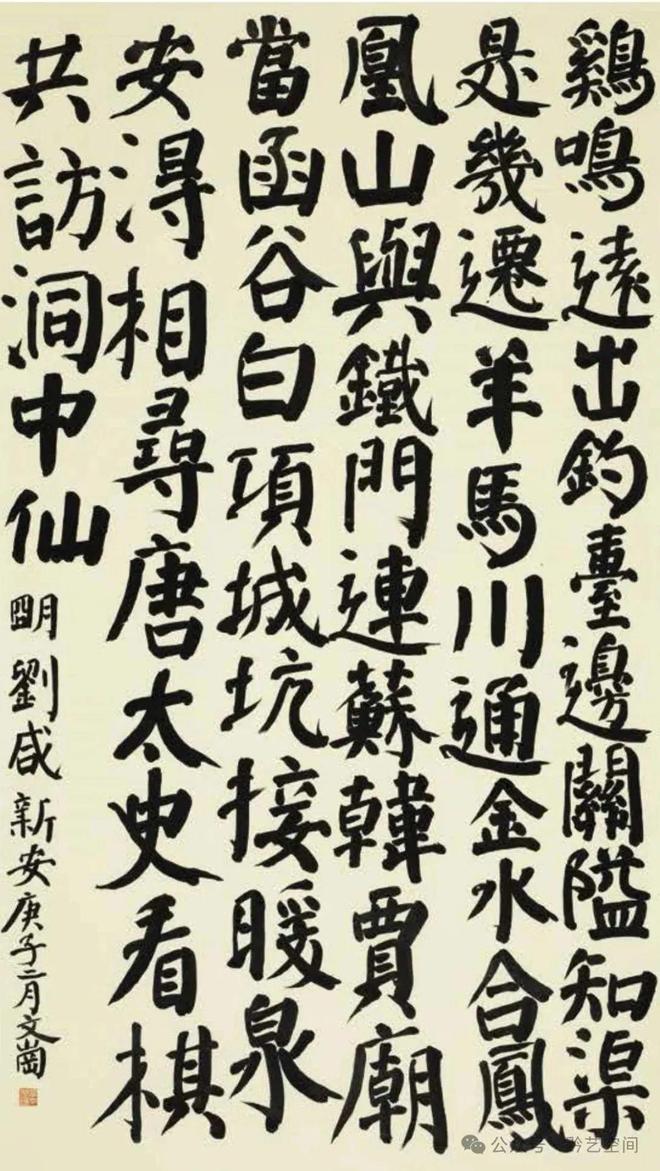 鷄鳴遠出釣臺邊關隘知渠
是幾遷羊馬川通金水合鳳
凰山與鐵門連蘇韓賈廟
當函谷白項城坑接暖泉
安淂相尋唐太史看棋
共訪洞中仙
明劉咸新安庚子二月文崗
公众号·黔艺空间